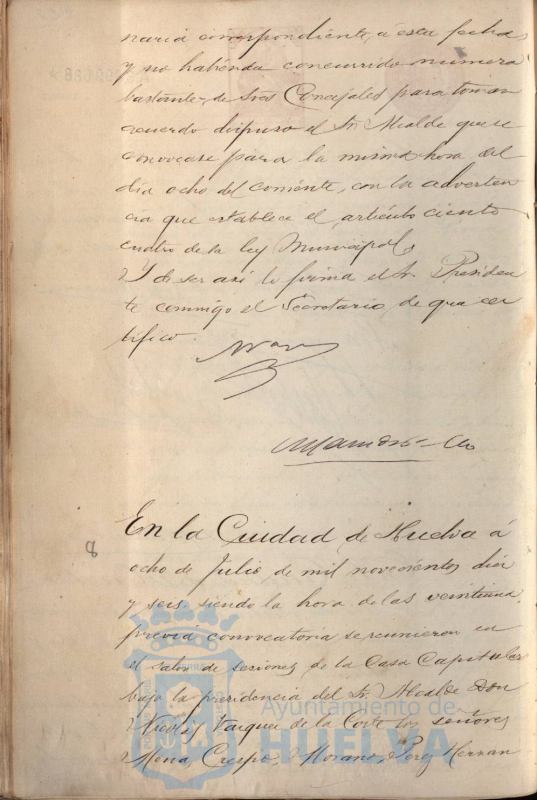 naria correspondiente a esta fecha
y no habiendo concurrido número
bastante de Sres Concejales para tomar
acuerdo dispuso el Sr. Alcalde que se
convocase para la misma hora del
día ocho del corriente, con la adverten
cia que establece el artículo ciento
cuatro de la ley Municipal,
Y de ser así lo firma el Sr. Presiden
te conmigo el Secretario, de que cer
tifico.
8
En la Ciudad de Huelva á
ocho de Julio de mil novecientos diez
y seis siendo la hora de las veintiuna
previa convocatoria se reunieron en
el salón de sesiones de la Casa Capitular
bajo la presidencia del Sr. Alcalde Don
Nicolás Vazquez de la Corte los señores
Mena, Crespo, Morano, Perez Hernan
Ayuntamiento de
HUELVA